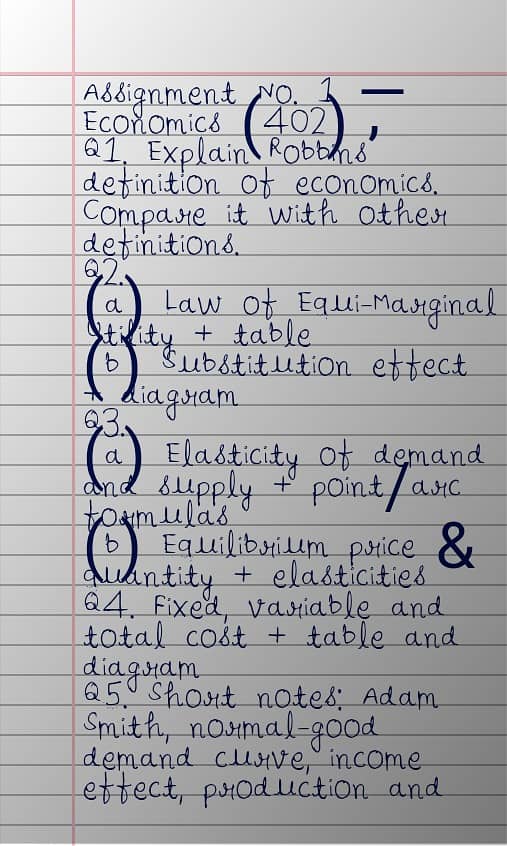 Assignment NO. 1 —
Economics (402)
Q1. Explain Robbins'
definition of economics.
Compare it with other
definitions.
Q2.
(a) Law of Equi-Marginal
Utility + table
(b) Substitution effect
+ diagram
Q3.
(a) Elasticity of demand
and supply + point/arc
formulas
(b) Equilibrium price &
quantity + elasticities
Q4. Fixed, variable and
total cost + table and
diagram
Q5. Short notes: Adam
Smith, normal-good
demand curve, income
effect, production and